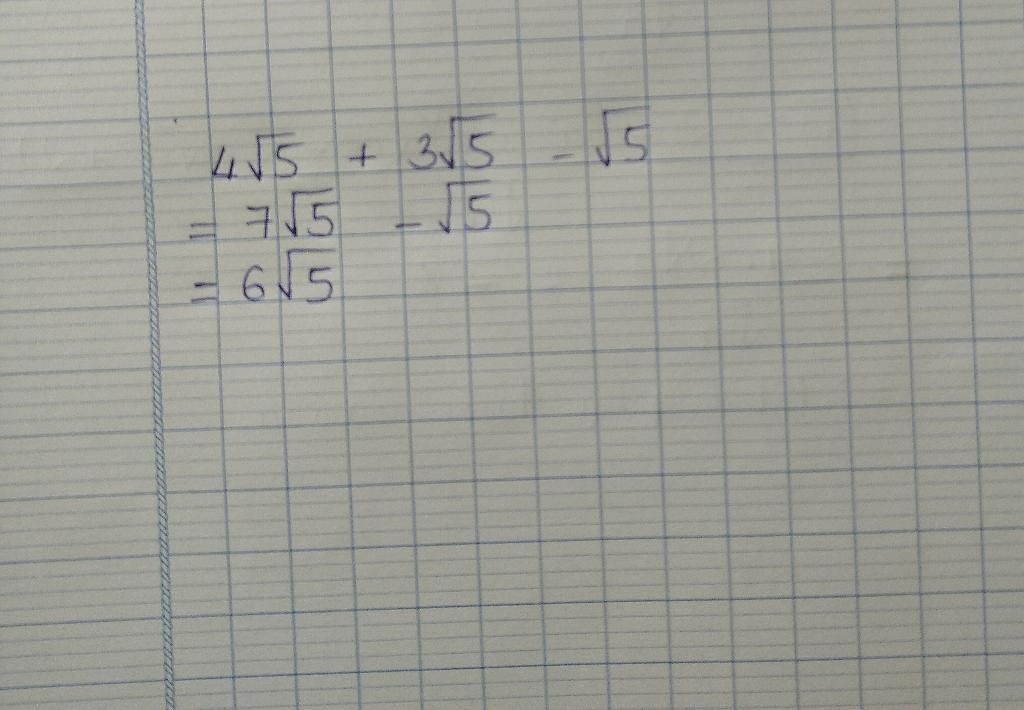 4√5 + 3√5 - √5
= 7√5 - √5
= 6√5